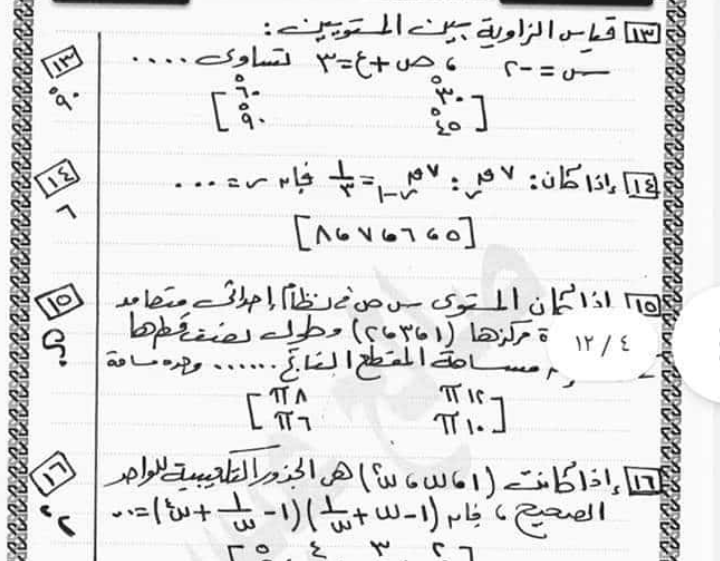 ١٣ قياس الزاوية بين المستويين :
س = -٢ ، ص + ع = ٣ تساوى ....
[ ٣٠° ٦٠°
٤٥° ٩٠° ]
١٣
٩٠°
١٤ إذا كان : ٧ل ر : ٧ل ر-١ = ١/٣ فإن ر = ...
[ ٥ ، ٦ ، ٧ ، ٨ ]
١٤
٦
١٥ اذا كان المستوى س ص فى نظام إحداثى متعامد
ة مركزها (١، ٣، ٢) وطول نصف قطرها
مساحة المقطع الناتج ...... وحدة مساحة
[ ١٢π ٨π
١٠π ٦π ]
١٥
؟
١٢ / ٤
١٦ إذا كانت (١، ω، ω²) هى الجذور التكعيبية للواحد
الصحيح ، فإن (١ - ω + ١/ω)(١ - ١/ω + ω٤) = ...
[ ٢ ٣ ٤ ٥
١٦